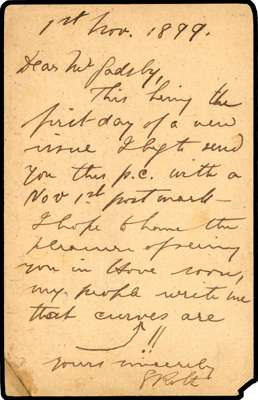 1st Nov. 1899.
Dear Mr Gadsby,
This being the
first day of a new
issue I beg to send
you this p.c. with a
Nov 1st postmark —
I hope to have the
pleasure of seeing
you in Hove soon,
my people write me
that curves are
!!
yours sincerely